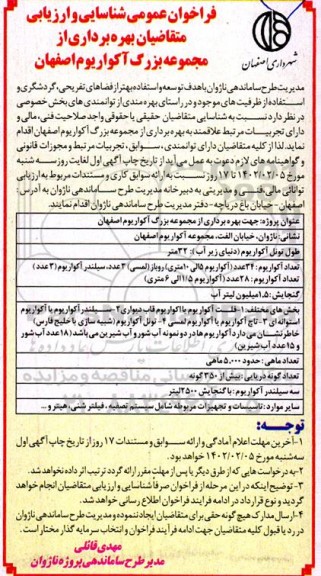 فراخوان عمومی شناسایی و ارزیابی
متقاضیان بهره برداری از
مجموعه بزرگ آکواریوم اصفهان
شهرداری اصفهان
مدیریت طرح ساماندهی ناژوان با هدف توسعه و استفاده بهتر از فضاهای تفریحی، گردشگری و
استفاده از ظرفیت های موجود و در راستای بهره مندی از توانمندی های بخش خصوصی
در نظر دارد نسبت به شناسایی متقاضیان حقیقی یا حقوقی واجد صلاحیت فنی، مالی و
دارای تجربیات مرتبط علاقمند به بهره برداری از مجموعه بزرگ آکواریوم اصفهان اقدام
نماید. لذا از کلیه متقاضیان دارای توانمندی، سوابق، تجربیات مرتبط و مجوزات قانونی
و گواهینامه های لازم دعوت به عمل می آید از تاریخ چاپ آگهی اول لغایت روز سه شنبه
مورخ ۱۴۰۲/۰۲/۰۵ تا ۱۷ روز نسبت به ارائه سوابق کاری و مستندات مربوط به ارزیابی
توانائی مالی فنی و مدیریتی به دبیرخانه مدیریت طرح ساماندهی ناژوان به آدرس:
اصفهان - خیابان باغ دریاچه - دفتر مدیریت طرح ساماندهی ناژوان اقدام نمایند.
عنوان پروژه: جهت بهره برداری از مجموعه بزرگ آکواریوم اصفهان
نشانی: ناژوان، خیابان الفت، مجموعه آکواریوم اصفهان
طول تونل آکواریوم (دنیای زیر آب): ۳۲ متر
تعداد آکواریوم: ۳۴ عدد (آکواریوم ۵ الی ۱۰ متری) روباز (لمسی) ۳ عدد، سیلندر آکواریوم (۳ عدد)
تعداد آکواریوم: ۲۸ عدد (آکواریوم ۱/۵ الی ۶ متری)
گنجایش: ۱.۵ میلیون لیتر آب
بخش های مختلف: ۱- فلت آکواریوم یا آکواریوم قاب دیواری ۲- سیلندر آکواریوم یا آکواریوم
استوانه ای ۳- تاچ آکواریوم یا آکواریوم لمسی ۴- تونل آکواریوم (شبیه سازی با خلیج فارس)
خاطرنشان می دارد آکواریوم ها در دو نمونه آب شور و آب شیرین می باشد (۱۸ عدد آب شور
و ۱۵ عدد آب شیرین)
تعداد ماهی: حدود ۵.۰۰۰ ماهی
تعداد گونه دریایی: بیش از ۳۵۰ گونه
سه سیلندر آکواریوم: با گنجایش ۲۵۰۰ لیتر
سایر موارد: تاسیسات و تجهیزات مربوطه شامل سیستم تصفیه، فیلتر شنی، هیتر و...
توجه:
۱- آخرین مهلت اعلام آمادگی و ارائه سوابق و مستندات ۱۷ روز از تاریخ چاپ آگهی اول
سه شنبه مورخ ۱۴۰۲/۰۲/۰۵ خواهد بود.
۲- به درخواست هایی که از طرق دیگر یا پس از مهلت مقرر ارائه گردد ترتیب اثر داده نخواهد شد.
۳- توضیح اینکه در این مرحله از فراخوان صرفا شناسایی و ارزیابی متقاضیان انجام خواهد
گردید و نوع قرارداد در ادامه فرایند فراخوان اطلاع رسانی خواهد شد.
۴- ارسال مدارک هیچ گونه حقی برای متقاضیان ایجاد ننموده و مدیریت طرح ساماندهی ناژوان
در رد یا قبول کلیه متقاضیان جهت ادامه فرآیند فراخوان و انتخاب سرمایه گذار مختار است.
مهدی قائلی
مدیر طرح ساماندهی پروژه ناژوان